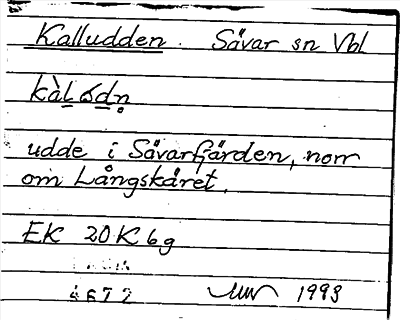 Kalludden. Sävar sn Vbl
kàLódn̥
udde i Sävarfjärden, norr
om Långskäret.
EK 20K6g
4672 1993